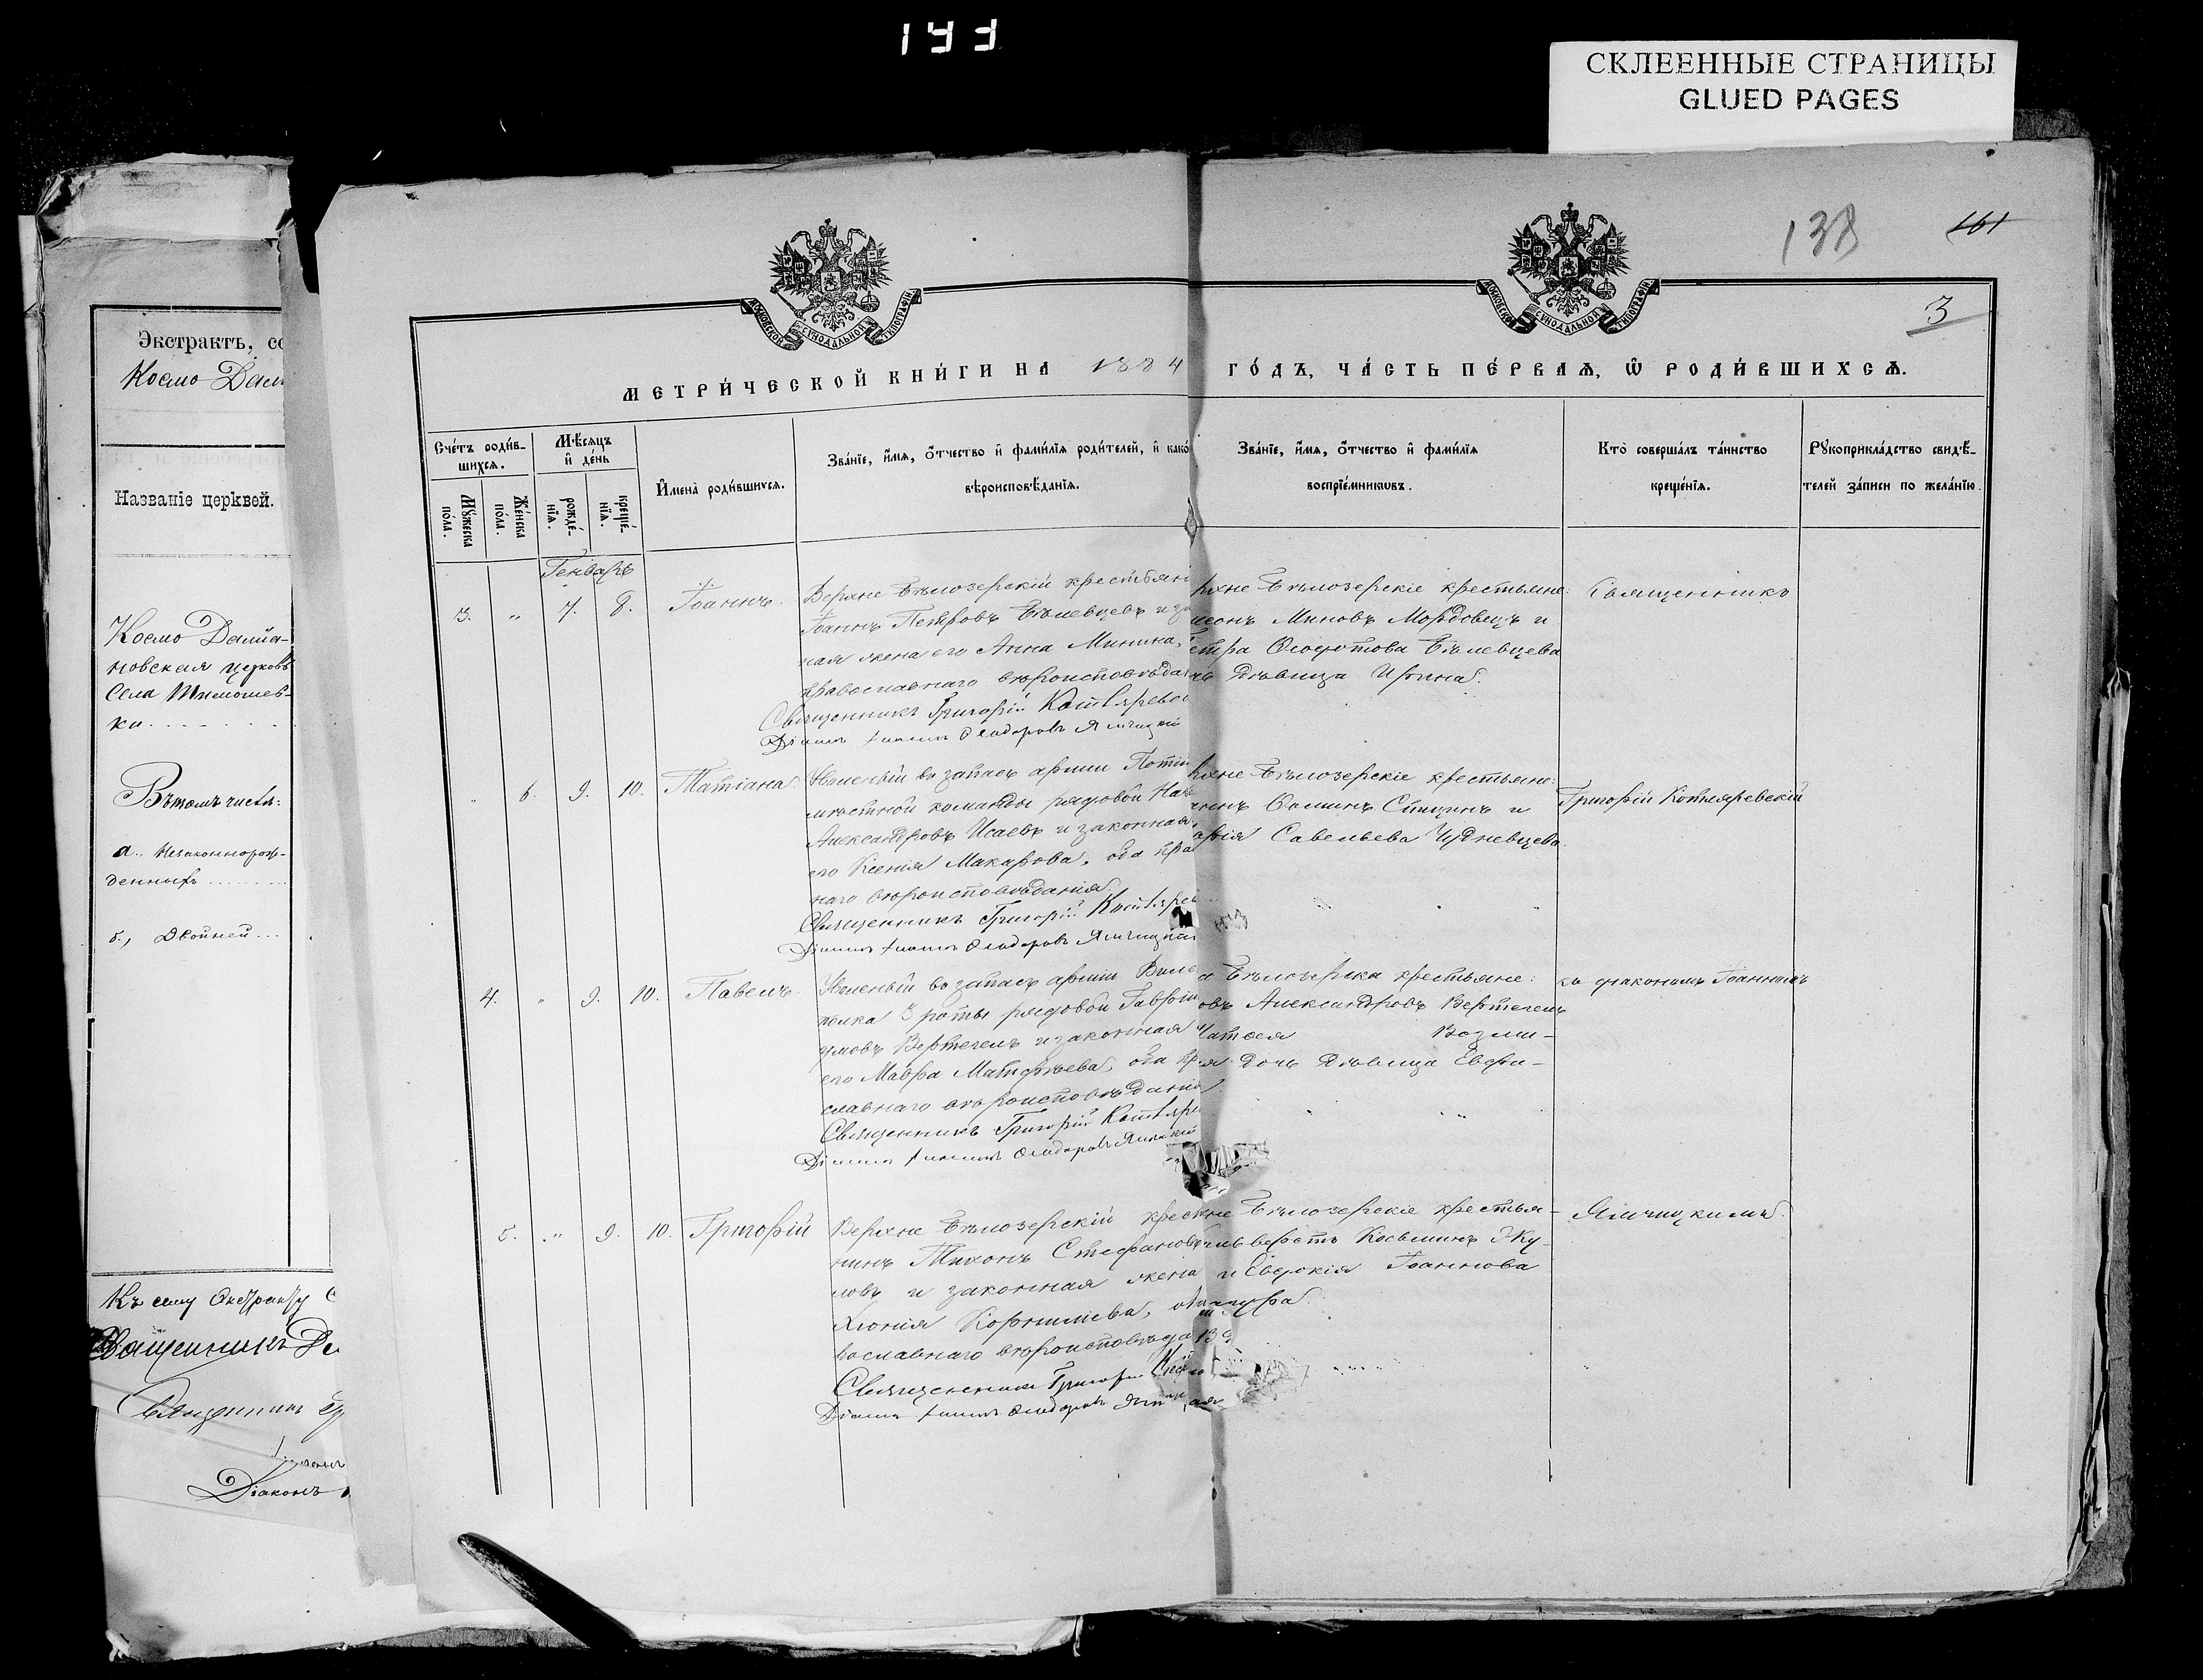 143
СКЛЕЕННЫЕ СТРАНИЦЫ
GLUED PAGES
138 161
3
МОСКОВСКОЙ СѴНОДАЛЬНОЙ ТИПОГРАФІИ
МОСКОВСКОЙ СѴНОДАЛЬНОЙ ТИПОГРАФІИ
Экстрактъ, со
Космо Дам
Названіе церквей.
Космо Даміа-
новская церковь
села Тимошев-
ки
Въ томъ числѣ:
а. Незаконнорож-
денныхъ
б., Двойней
Къ сему Экстракту С
Священникъ
Священникъ
Діаконъ
МЕТРИ́ЧЕСКОЙ КНИ́ГИ НА 1884 ГО́ДЪ, ЧА́СТЬ ПЕ́РВАѦ, Ѡ҆ РОДИ́ВШИХСѦ.
Сче́тъ роди́в-
шихсѧ.
Мꙋ́жеска по́ла.
Же́нска по́ла.
Мѣ́сѧцъ и҆ де́нь
рожде́нїѧ.
креще́нїѧ.
И҆мена̀ роди́вшихсѧ.
Зва́нїе, и҆́мѧ, ѻ҆́тчество и҆ фами́лїѧ роди́телей, и҆ како́
вѣроисповѣ́данїѧ.
Зва́нїе, и҆́мѧ, ѻ҆́тчество и҆ фами́лїѧ
воспрїе́мникѡвъ.
Кто̀ соверша́лъ та́инство
креще́нїѧ.
Рꙋкоприкла́дство свидѣ́-
телей за́писи по жела́нїю.
Генварь
3. „ 7. 8. Іоаннъ.
Верхне Бѣлозерскій крестьяни
Іоаннъ Петровъ Бѣлевцевъ и за
ная жена его Анна Минина,
православнаго вѣроисповѣдан
Священникъ Григорій Котляревс
Діаконъ Іоаннъ Ѳеодоровъ Ямчицкій
рхне Бѣлозерскіе крестьяне:
меонъ Миновъ Мордовецъ и
етра Ѳеофотова Бѣлевцева
чь дѣвица Ирина.
Священникъ
„ 6. 9. 10. Татіана.
Уволеный въ запасъ арміи Поти
мѣстной команды рядовой На
Александровъ Исаевъ и законная
его Ксенія Макарова, оба пра
наго вѣроисповѣданія.
Священникъ Григорій Котляре
Діаконъ Іоаннъ Ѳеодоровъ Ямчицкій
рхне Бѣлозерскіе крестьяне:
аннъ Ѳоминъ Спицинъ и
арія Савельева Чудневцева.
Григорій Котляревскій
4. „ 9. 10. Павелъ.
Уволеный въ запасъ арміи Виле
полка 3 роты рядовой Гавріи
умовъ Вертечелъ и законная
его Мавра Матѳѣева, оба пр
славнаго вѣроисповѣданія.
Священникъ Григорій Котляре
Діаконъ Іоаннъ Ѳеодоровъ Ямчицкій
а Бѣлозерка крестьяне:
овъ Александровъ Вертечелъ
я дочь дѣвица Евфи-
съ діакономъ Іоанномъ
5. „ 9. 10. Григорій
Верхне Бѣлозерскій крес
нинъ Тихонъ Стефановъ
ловъ и законная жена
Хіонія Корнилиева, оба
вославнаго вѣроисповѣда
Священникъ Григорій
Діаконъ Іоаннъ Ѳеодоровъ
не Бѣлозерскіе крестья-
верстъ Косьминъ Жу-
и Евдокія Іоаннова
Ямчицкимъ.